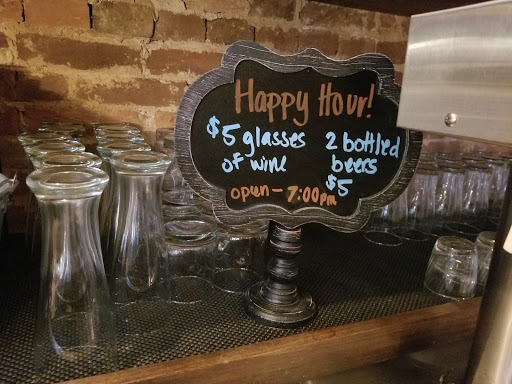 Happy Hour!
$5 glasses
of wine
2 bottled
beers
$5
open - 7:00pm